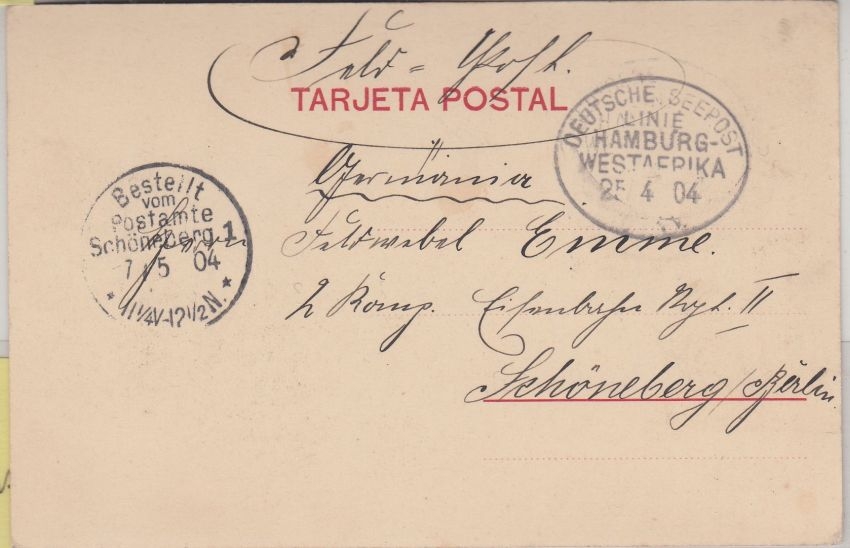 Feld = Post.
TARJETA POSTAL
DEUTSCHE SEEPOST
LINIE
HAMBURG-
WESTAFRIKA
25 4 04
Germania
Bestellt
vom
Postamte
Schöneberg 1
7 5 04
* 11¼V-12½N. *
Herrn
Feldwebel Emme.
2 Komp. Eisenbahn Rgt. II
Schöneberg / Berlin.